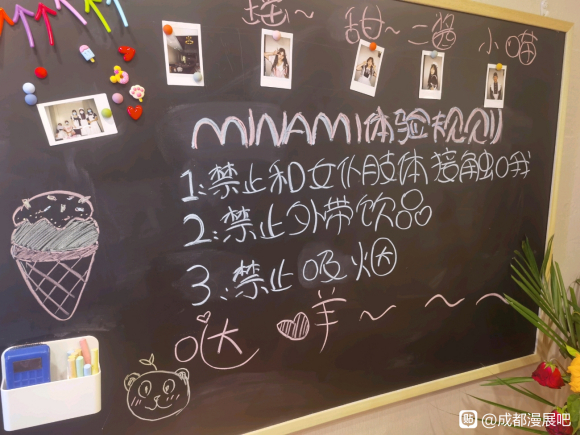 瑶~ 甜~ 二酱 小喵
MINAMI体验规则
1:禁止和女仆肢体接触哦
2:禁止外带饮品
3:禁止吸烟
哒 咩~ ~ ~
贴 @成都漫展吧